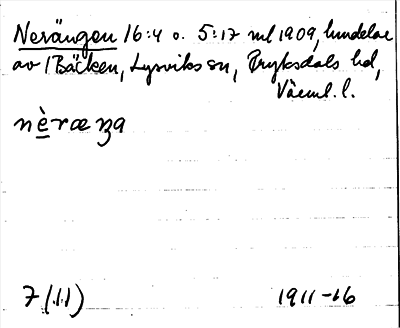 Nerängen 16:4 o. 5:17 ml 1909, hundelar
av 1 Bäcken, Lysviks sn, Fryksdals hd,
Värml. l.
nèræŋa
7 (11)
1911-16